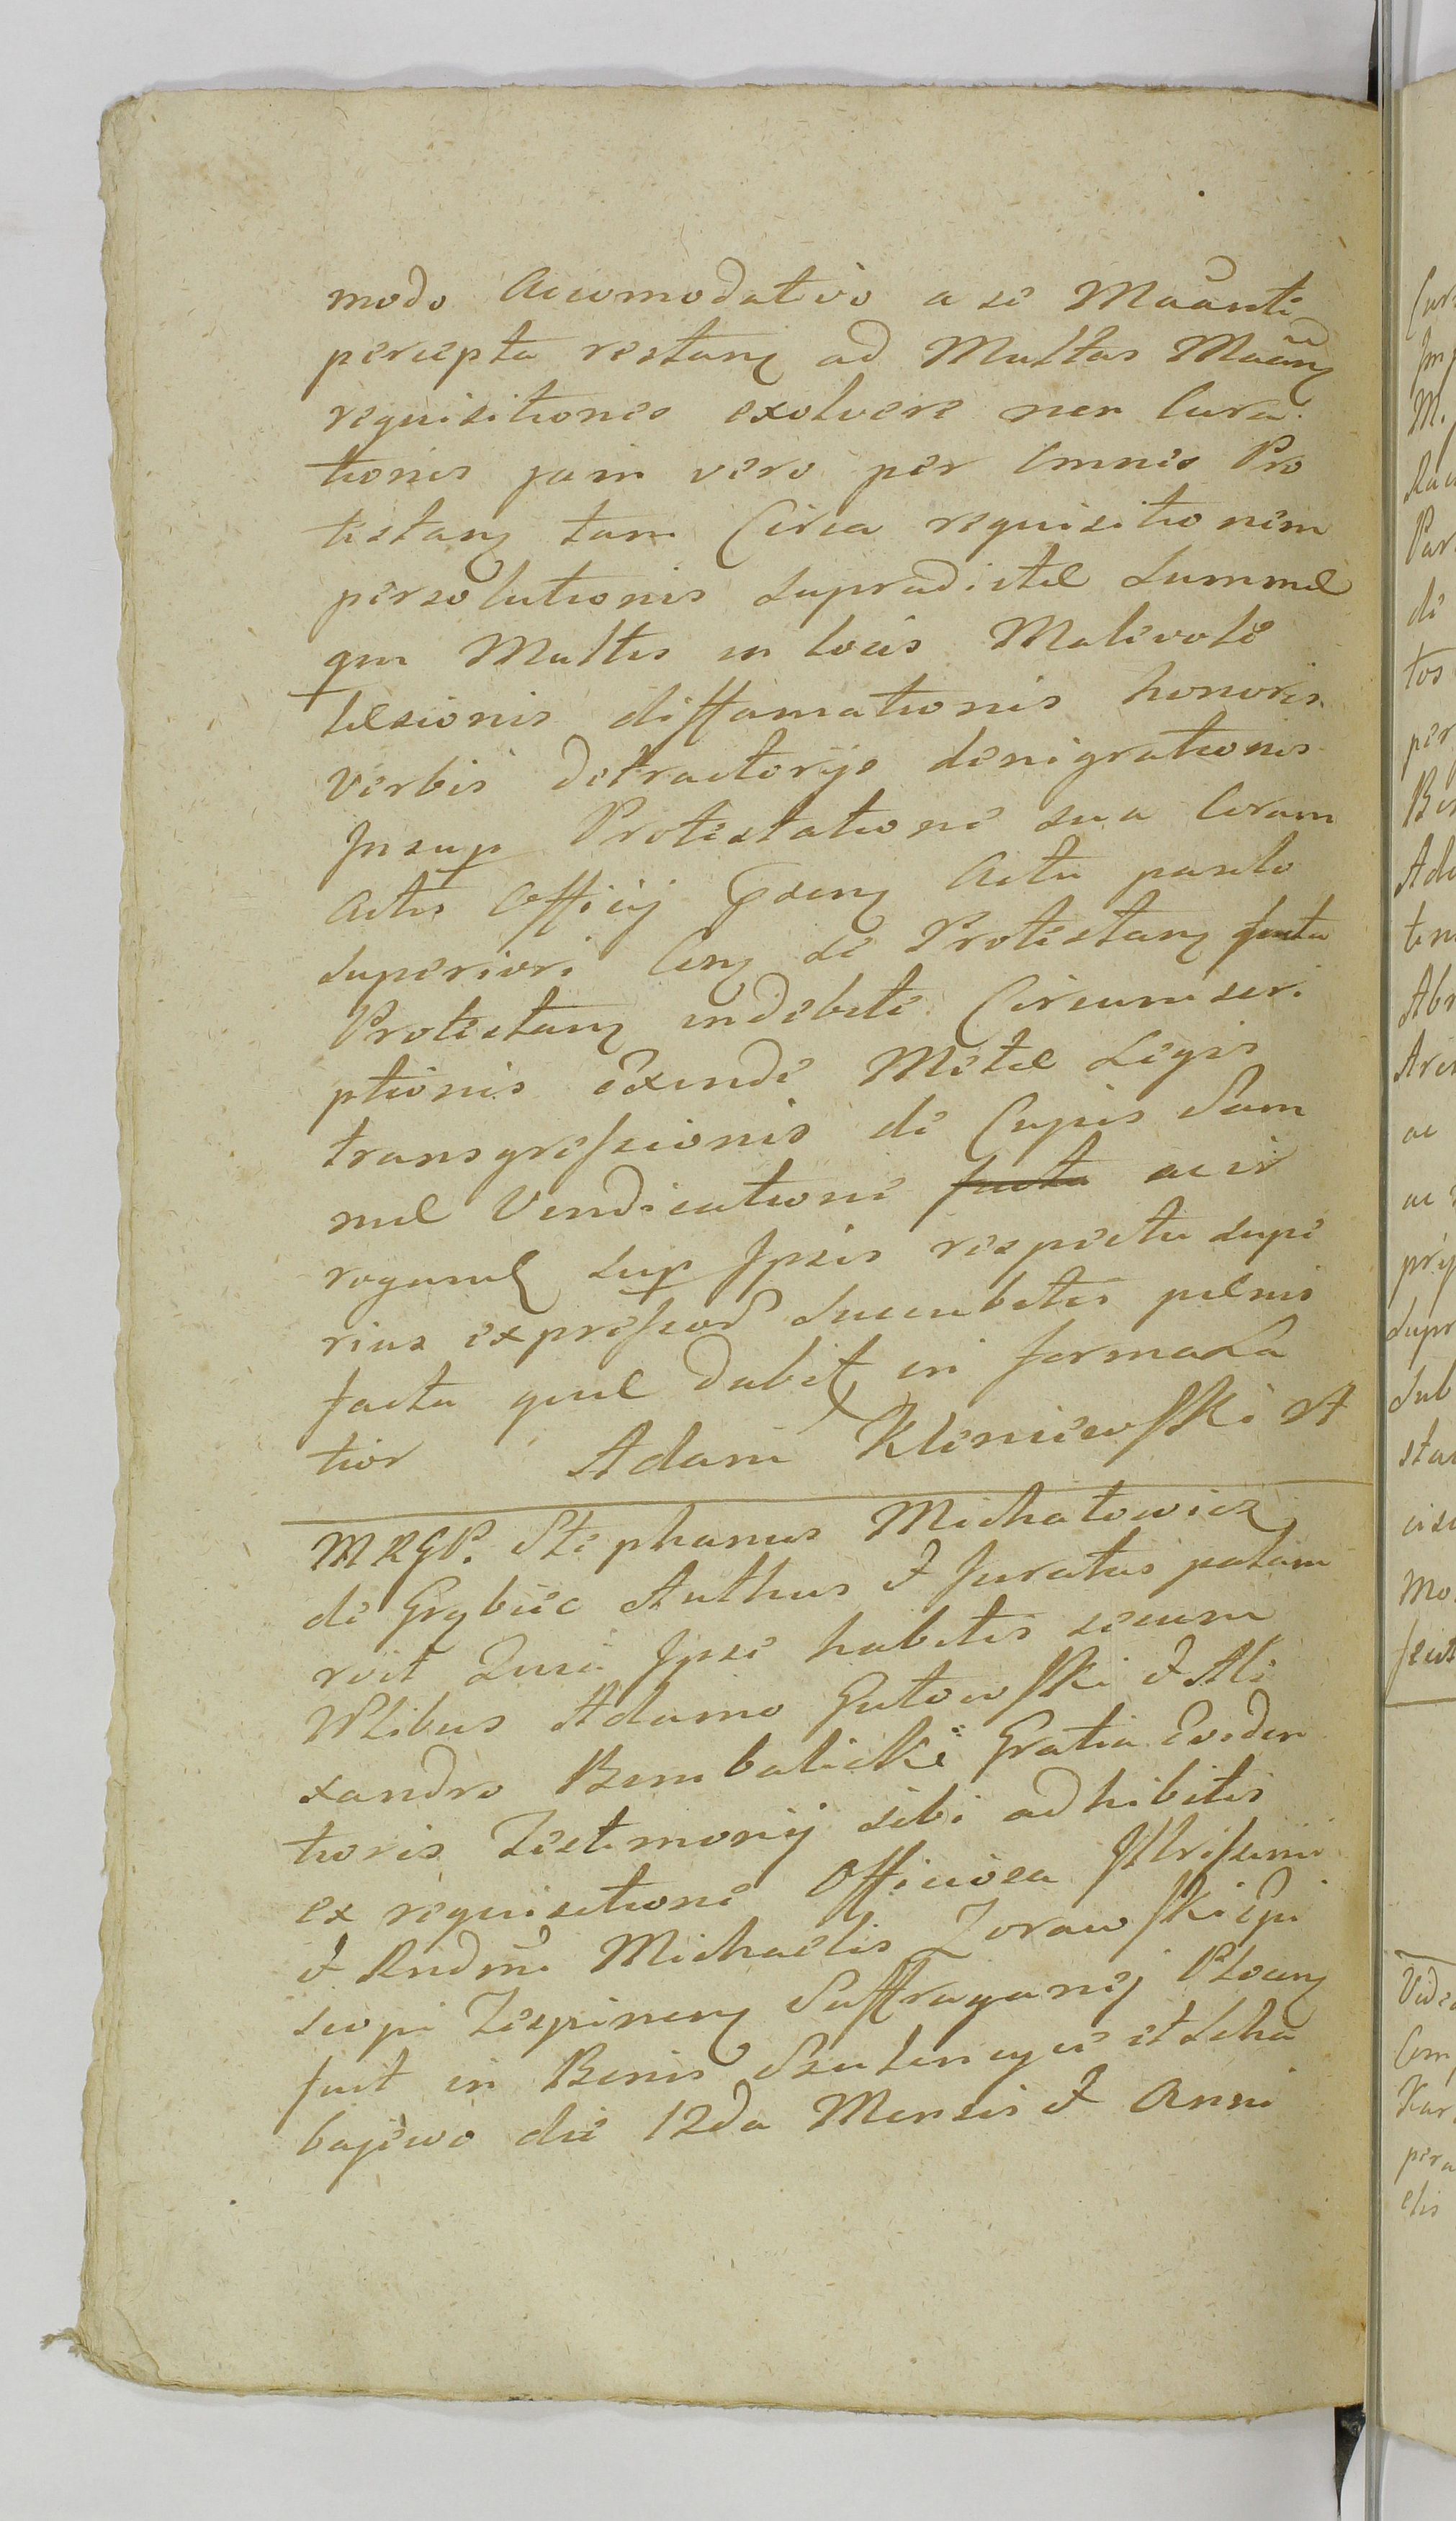 modo Accomodativo a se Maanti
percepta restanꝫ ad Multas Maanꝫ
requisitiones exolvere non Cura
tionis jam vero per Omnes Pro
testanꝫ tam Circa requisitionem
persolutionis supradictæ summæ
qm Multis in locis Malevole
læsionis diffamationis honoris
verbis detractorijs denigrationis
Insup Protestatione sua Coram
Actis Officij pñtenꝫ Actu paulo
superiori Conꝫ se Protestanꝫ facta
Protestanꝫ indebite Circumscri
ptionis Exinde Metæ Legis
transgressionis de Cujus Dam
næ Vendicatione facta ac ir
roganꝫ sup Ipsis respectu supe
rius expressoꝝ succubitis pœnis
facta quæ dabitꝫ in forma La
tior Adam Kleniewski A
MRGP. Stephanus Michałowicz
de Grybiec Authus & Juratus palam
rvit Quia Ipse habitis secum
Nblibus Adamo Gutowski & Ale
xandro Bembalicki Gratia Eviden
tioris Testimonij sibi adhibitis
ex requisitione Officiosa Illrissimi
& Rndmi Michaelis Zorawski Epi
scopi Tespinenꝫ Suffraganej Plocenꝫ
fuit in Bonis Szulenczyce et Scha
bajewo die 12da Mensis & Anni